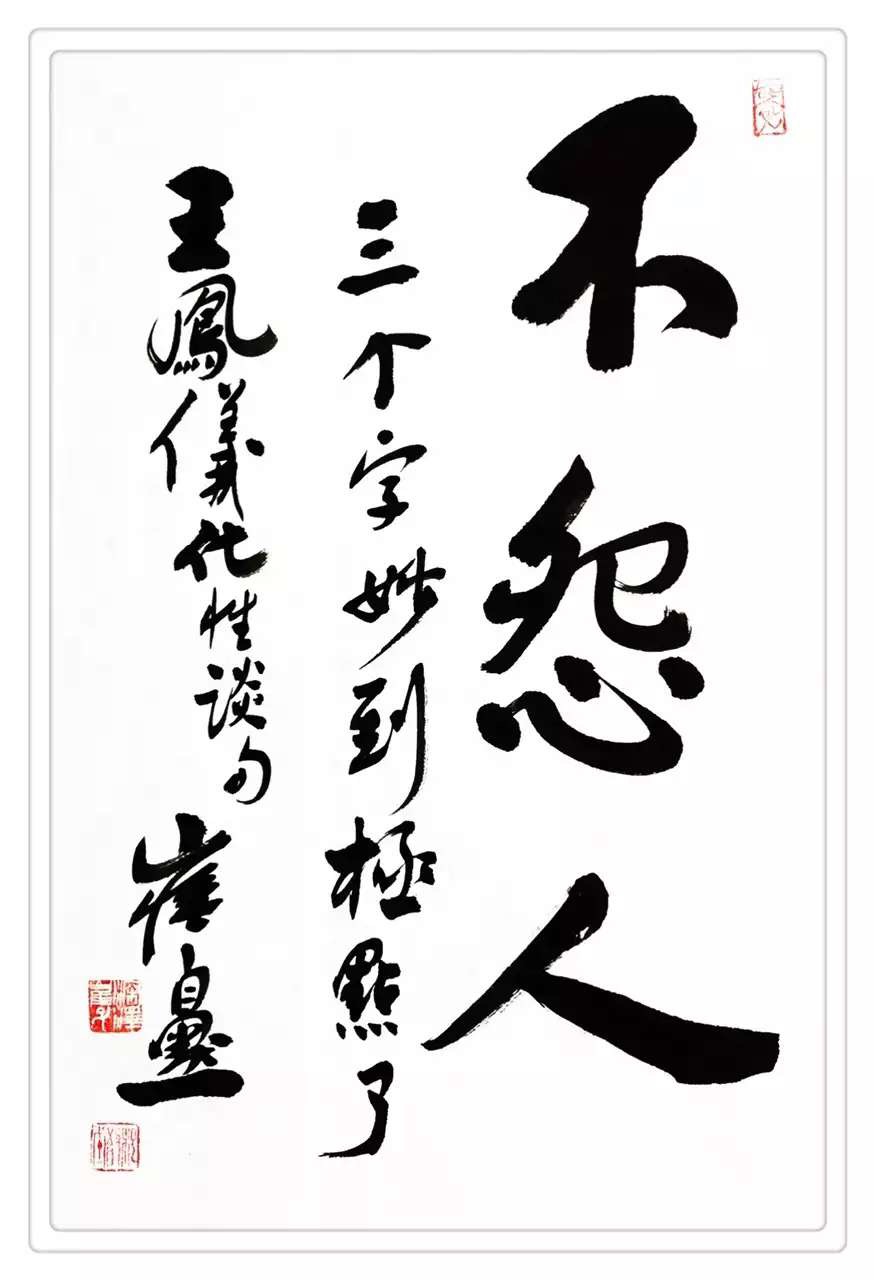 不怨人
三个字妙到極點了
王鳳儀化性談句
崔